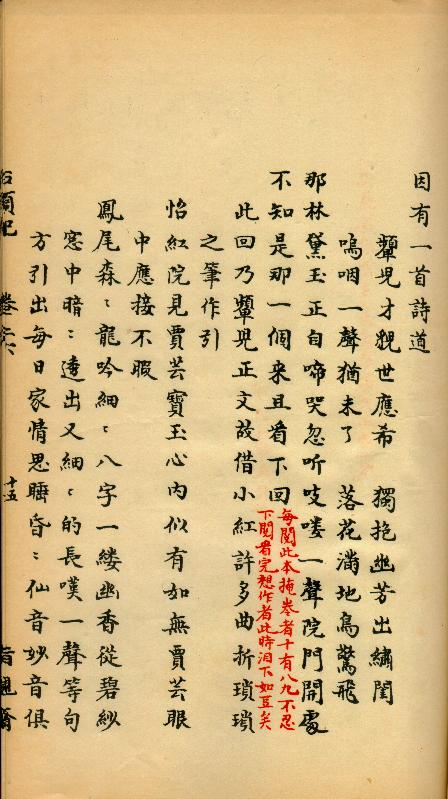 因有一首詩道
顰児才貌世應希　獨抱幽芳出繡閨
嗚咽一聲猶未了　落花滿地鳥驚飛
那林黛玉正自啼哭忽听吱喽一聲院門開處
不知是那一個來且看下回
每閱此本掩卷者十有八九不忍
下閱看完想作者此時泪下如豆矣
此回乃顰児正文故借小紅許多曲折瑣瑣
之筆作引
怡紅院見賈芸寶玉心內似有如無賈芸眼
中應接不暇
鳳尾森ミ龍吟細ミ八字一縷幽香從碧紗
窓中暗ミ透出又細ミ的長嘆一聲等句
方引出每日家情思睡昏ミ仙音妙音俱
石頭記　卷　十五